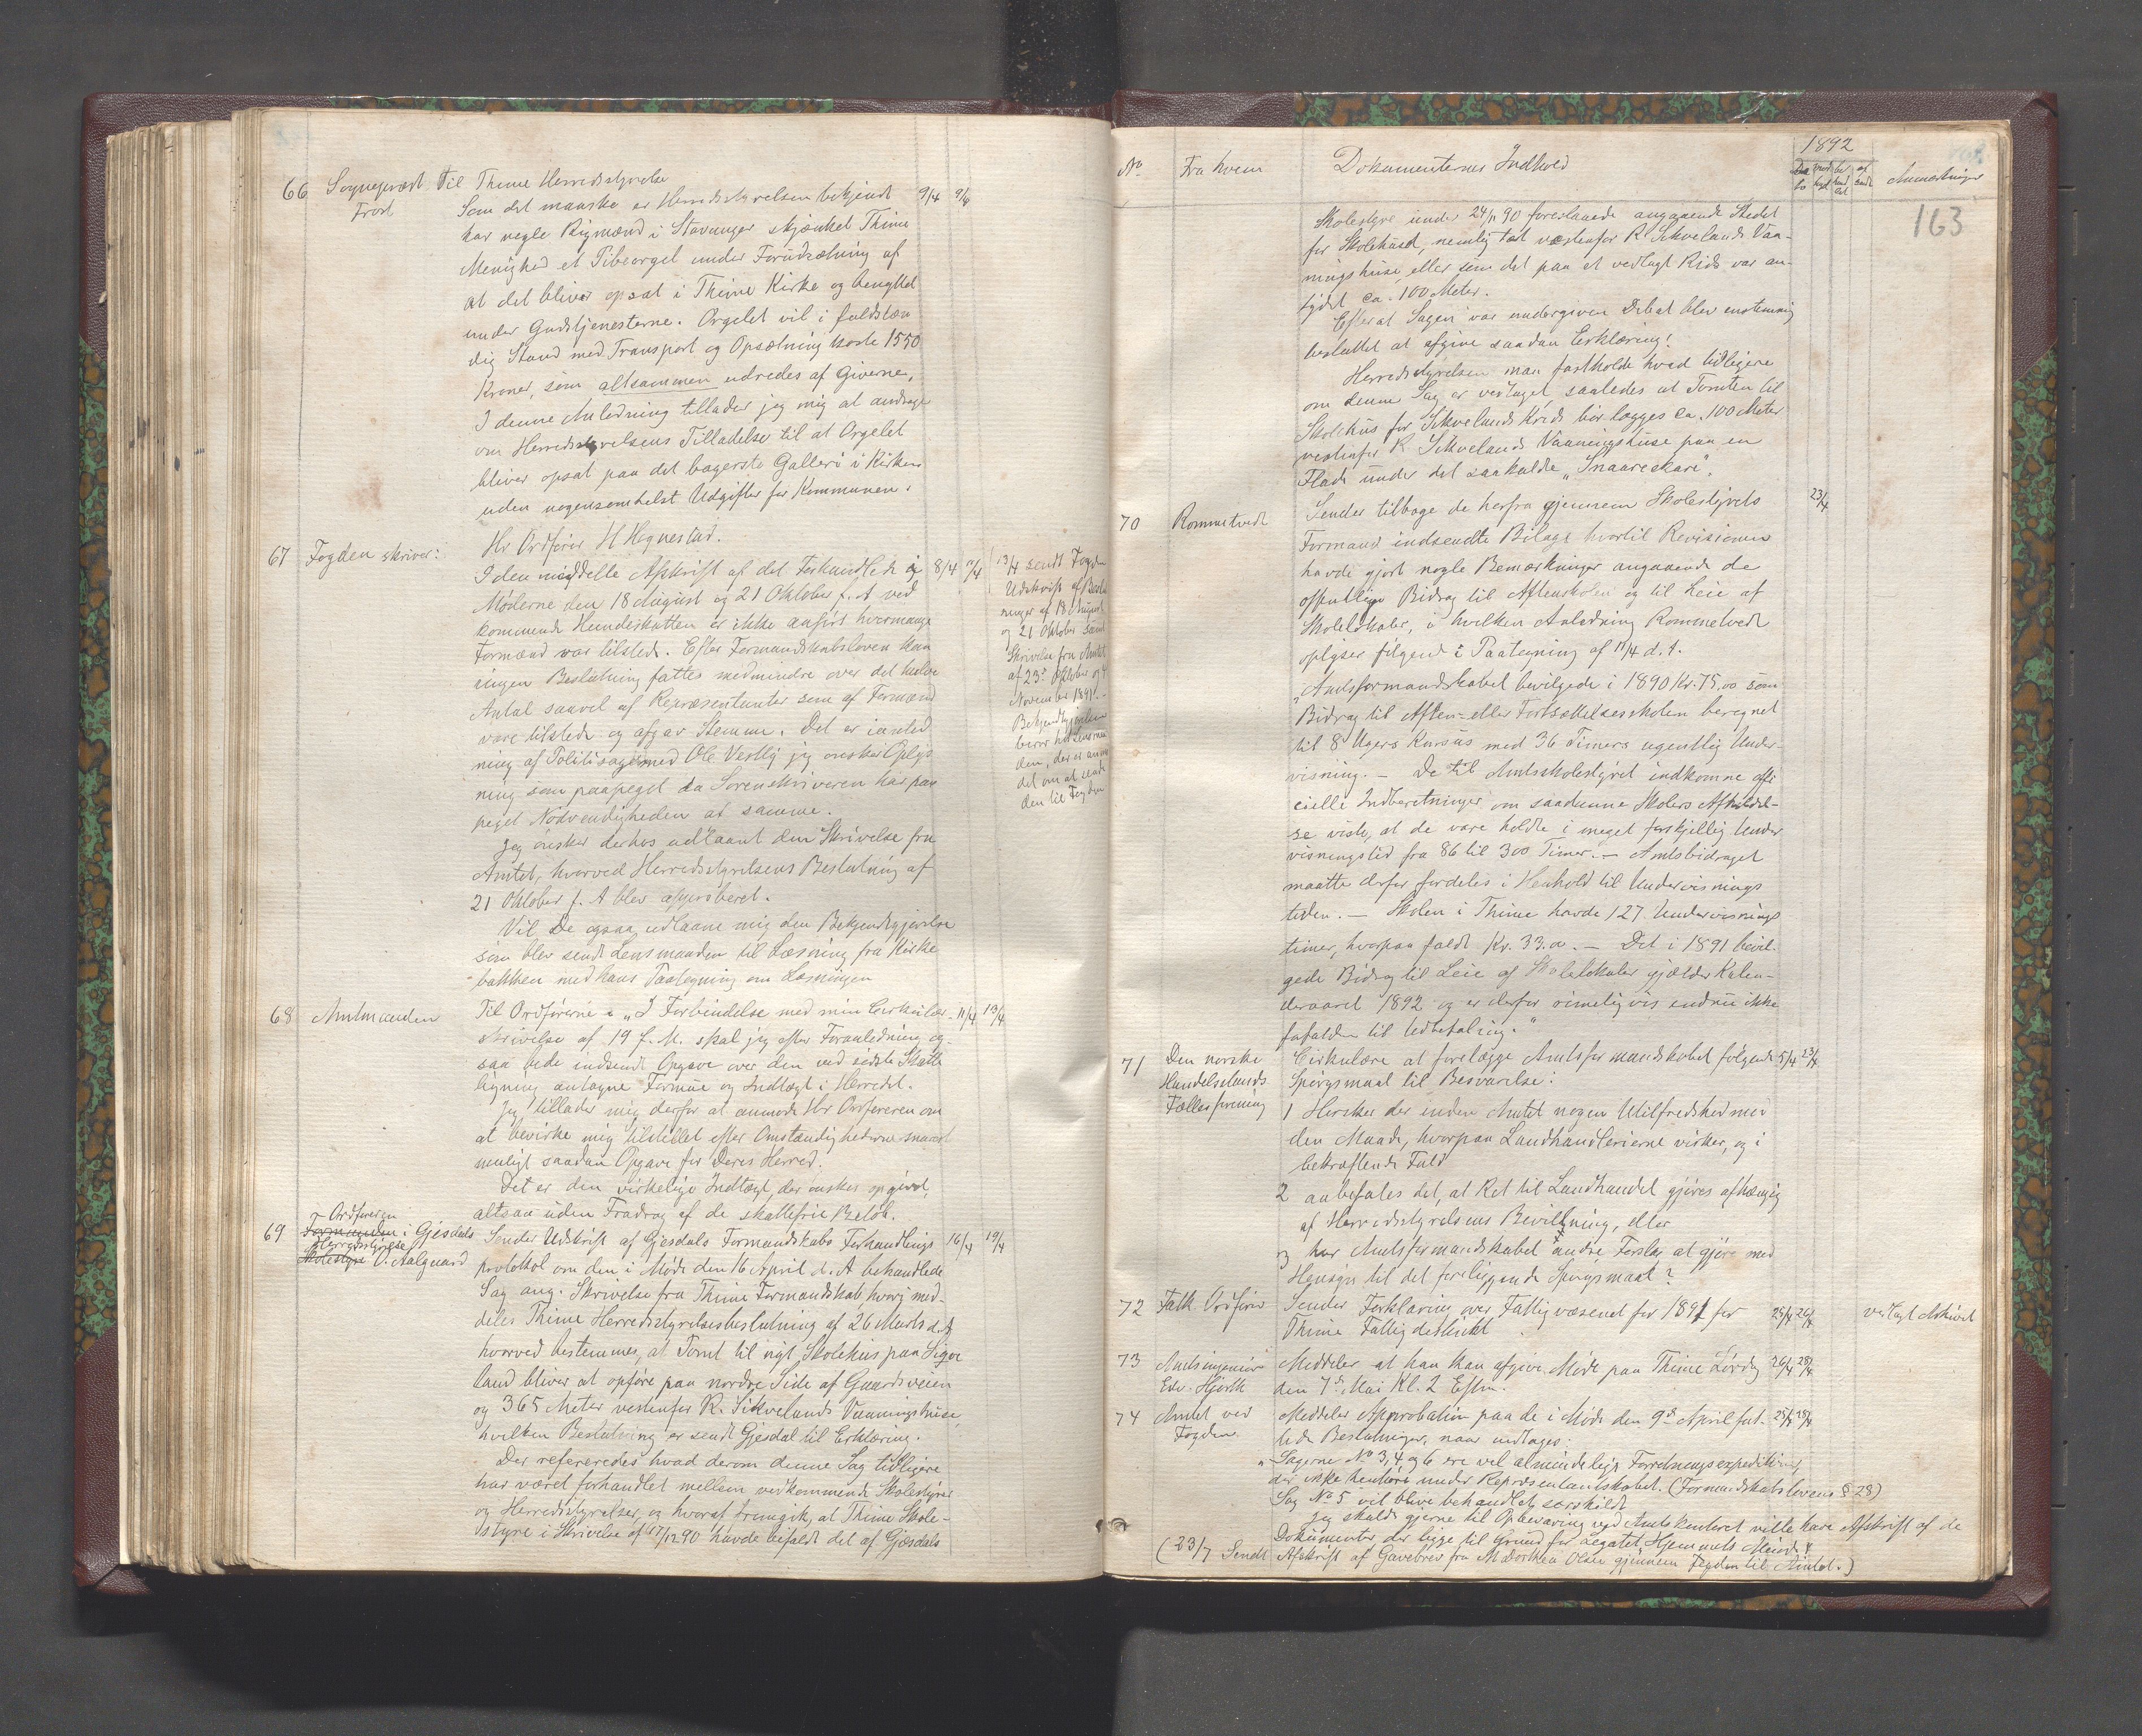 66 Sogneprest Til Thime Herredsstyrelse
Frost Som det maaske er Herredsstyrelsen bekjendt 9/4 9/6
har nogle Rigmænd i Stavanger skjænket Thime
Menighed et Pibeorgel under Forudsætning af
at det bliver opsat i Thime Kirke og benyttet
under Gudstjenesterne. Orgelet vil i fuldstæn
dig Stand med Transport og Opsætning koste 1550
Kroner, som altsammen udredes af Giverne,
I denne Anledning tillader jeg mig at andrage
om Herredsstyrelsens Tilladelse til at Orgelet
bliver opsat paa det bagerste Galleri i Kirken
uden nogensomhelst Udgifter for Kommunen.
Hr Ordfører H Hognestad.
67 Fogden skriver: I den meddelte Afskrift af det Forhandlede i 8/4 9/4
Møderne den 18 August og 21 Oktober f. A ved
kommende Hundeskatten er ikke anført hvormange
Formænd var tilsted. Efter Formandskabsloven kan
ingen Beslutning fattes medmindre over det halve
Antal saavel af Repræsentanter som af Formænd
vare tilstede og afgav Stemme. Det er i anled
ning af Politisagen med Ole Vestly jeg ønsker Oplys
ning som paapeget da Sorenskriveren har paa
peget Nødvendigheden af samme.
Jeg ønsker derhos udlaant den Skrivelse fra
Amtet, hvorved Herredsstyrelsens Beslutning af
21 Oktober f. A blev approberet.
Vil De ogsaa udlaane mig den Bekjendtgjørelse
som blev sendt Lensmanden til Læsning fra Kirke
bakken med hans Paategning om Læsningen
13/4 sendt Fogden
Udskrift af Beslut
ninger af 18 August
og 21 Oktober samt
Skrivelse fra Amtet
af 23de Oktober og 4
November 1891.
Bekjendtgjørelsen
beror hos Lensman
den, der er anmo
det om at sende
den til Fogden
68 Amtmanden Til Ordførerne: „I Forbindelse med min Cirkulær 11/4 13/4
skrivelse af 19 f. M. skal jeg efter Foranledning og
saa bede indsendt Opgave over den ved sidste Skatte
ligning antagne Formue og Indtægt i Herredet.
Jeg tillader mig derfor at anmode Hr Ordføreren om
at bevirke mig tilstillet efter Omstændighederne snarest
muligt saadan Opgave for Deres Herred.
Det er den virkelige Indtægt, der ønskes opgivet,
altsaa uden Fradrag af de skattefrie Beløb.
Ordføreren
69 Formanden i Gjesdals Sender Udskrift af Gjesdals Formandskabs Forhandlings 16/4 19/4
Herredsstyrelse
Skolestyre O. Aalgaard protokol om den i Møde den 16 April d. A behandlede
Sag ang. Skrivelse fra Thime Formandskab, hvori med-
deles Thime Herredsstyrelses beslutning af 26 Marts d. A
hvorved bestemmes, at Tomt til nyt Skolehus paa Sige
land bliver at opføre paa nordre Side af Gaardsveien
og 365 Meter vestenfor R. Sikvelands Vaaningshuse,
hvilken Beslutning er sendt Gjesdal til Erklæring.
Der refereredes hvad derom denne Sag tidligere
har været forhandlet mellem vedkommende Skolestyrer
og Herredsstyrelser, og hvoraf fremgik, at Thime Skole-
styre i Skrivelse af 17/12 90 havde bifaldt det af Gjesdals
No Fra hvem Dokumenternes Indhold 1892 Anmærkninger
163
Skolestyre under 24/11 90 foreslaaede angaaende Stedet
for Skolehuset, nemlig tæt vestenfor R Sikvelands Vaa-
ningshuse, eller som det paa et vedlagt Rids var an-
tydet ca. 100 Meter.
Efterat Sagen var undergiven Debat blev enstemmig
besluttet at afgive saadan Erklæring:
Herredsstyrelsen maa fastholde hvad tidligere
om denne Sag er vedtaget saaledes at Tomten til
Skolehus for Sikvelands Kreds bør lægges ca. 100 Meter
vestenfor R Sikvelands Vaaningshuse paa en
Flade under det saakaldte „Snaareskare“.
70 Rommetvedt Sender tilbage de herfra gjennem Skolestyrets 23/4
Formand indsendte Bilage hvortil Revisionen
havde gjort nogle Bemærkninger angaaende de
offentlige Bidrag til Aftenskolen og til Leie af
Skolelokaler, i hvilken Anledning Rommetvedt
oplyser følgende i Paategning af 11/4 d. A.
„Amtsformandskabet bevilgede i 1890 Kr. 75,00 som
Bidrag til Aften- eller Fortsættelsesskolen beregnet
til 8 Ugers Kursus med 36 Timers ugentlig Under-
visning. — De til Amtsskolestyret indkomne offi
cielle Indberetninger om saadanne Skolers Afholdel-
se viste, at de vare holdte i meget forskjellig Under
visningstid fra 86 til 300 Timer. — Amtsbidraget
maatte derfor fordeles i Henhold til Undervisnings
tiden. — Skolen i Thime havde 127 Undervisnings
timer, hvorpaa faldt Kr. 33.00. — Det i 1891 bevil-
gede Bidrag til Leie af Skolelokaler gjælder Kalen-
deraaret 1892 og er derfor rimeligvis endnu ikke
forfalden til Udbetaling.“
71 Den norske Cirkulære at forelægge Amtsformandskabet følgende 5/4 23/4
Handelsstands Spørgsmaal til Besvarelse:
Fællesforening 1 Hersker der inden Amtet nogen Utilfredshed med
den Maade, hvorpaa Landhandlerierne virker, og i
bekræftende Fald
2 anbefales det, at Ret til Landhandel gjøres afhængig
af Herredsstyrelsens Bevillning, eller
3 har Amtsformandskabet andre Forslag at gjøre med
Hensyn til det foreliggende Spørgsmaal?
72 Fatk Ordfører Sender Forklaring over Fattigvæsenet for 1891 for 25/4 26/4 vedlagt Arkivet
Thime Fattigdistrikt
73 Amtsingeniør Meddeler at han kan afgive Møde paa Thime Lørdag 26/4 28/4
Edv. Hjorth den 7de Mai Kl. 2 Eftm.
74 Amtet ved Meddeler Approbation paa de i Møde den 9de April fat- 25/4 28/4
Fogden. tede Beslutninger, naar undtages:
„Sagerne No 3, 4 og 6 ere vel almindelige Forretningsexpeditioner,
der ikke henhøre under Repræsentantskabet. (Formandskabslovens § 28)
Sag No 5 vil blive behandlet særskildt.
Jeg skulde gjerne til Opbevaring ved Amtskontoret ville have Afskrift af de
Dokumenter der ligge til Grund for Legatet Hjemmets Minde“
(23/7 Sendt Afskrift af Gavebrev fra M Dorthea Olsen gjennem Fogden til Amtet.)